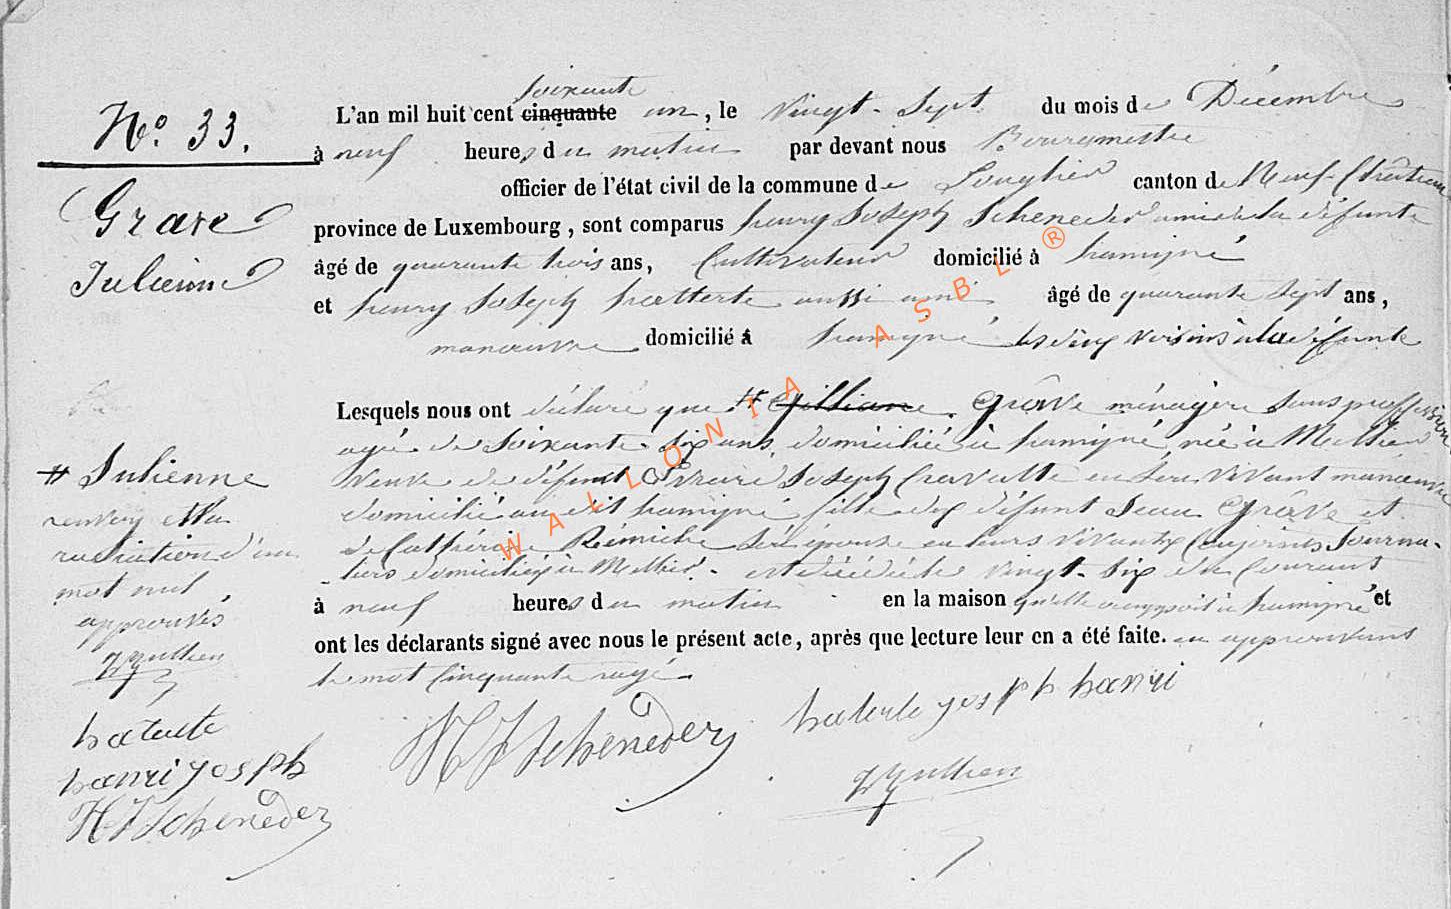 N.° 33.
Grave
Julienne
soixante
L'an mil huit cent cinquante un, le vingt-sept du mois de Décembre
à neuf heures du matin par devant nous Bourgmestre
officier de l'état civil de la commune de Longlier canton de Neufchâteau
province de Luxembourg, sont comparus henry Joseph Scheneder ami de la défunte
âgé de quarante trois ans, Cultivateur domicilié à hamipré
et henry Joseph hatterte aussi ami âgé de quarante sept ans,
manœuvre domicilié à hamipré les deux voisins à la défunte
Lesquels nous ont déclaré que # Grâve ménagère sans proffession
agée de soixante-six ans, domiciliée à hamipré née à Mellier
veuve de défunt Pierre Joseph Cravatte en son vivant manœuvre
domicilié au dit hamipré fille des défunt Jean Grâve et
de Cathérine Rémiche ser epouse en leurs vivants conjoints Journa-
liers domiciliés à Mellier. - est décédée le vingt-six du courant
à neuf heures du matin en la maison qu'elle occuppait à hamipré et
ont les déclarants signé avec nous le présent acte, après que lecture leur en a été faite. en approuvant
le mot Cinquante rayé.
# Julienne
renvoy et la
radiation d'un
mot nul
approuvés
haterte
hanri joseph
H J Scheneder
H J Scheneder
haterte joseph hanri
WALLONIA ASBL ®